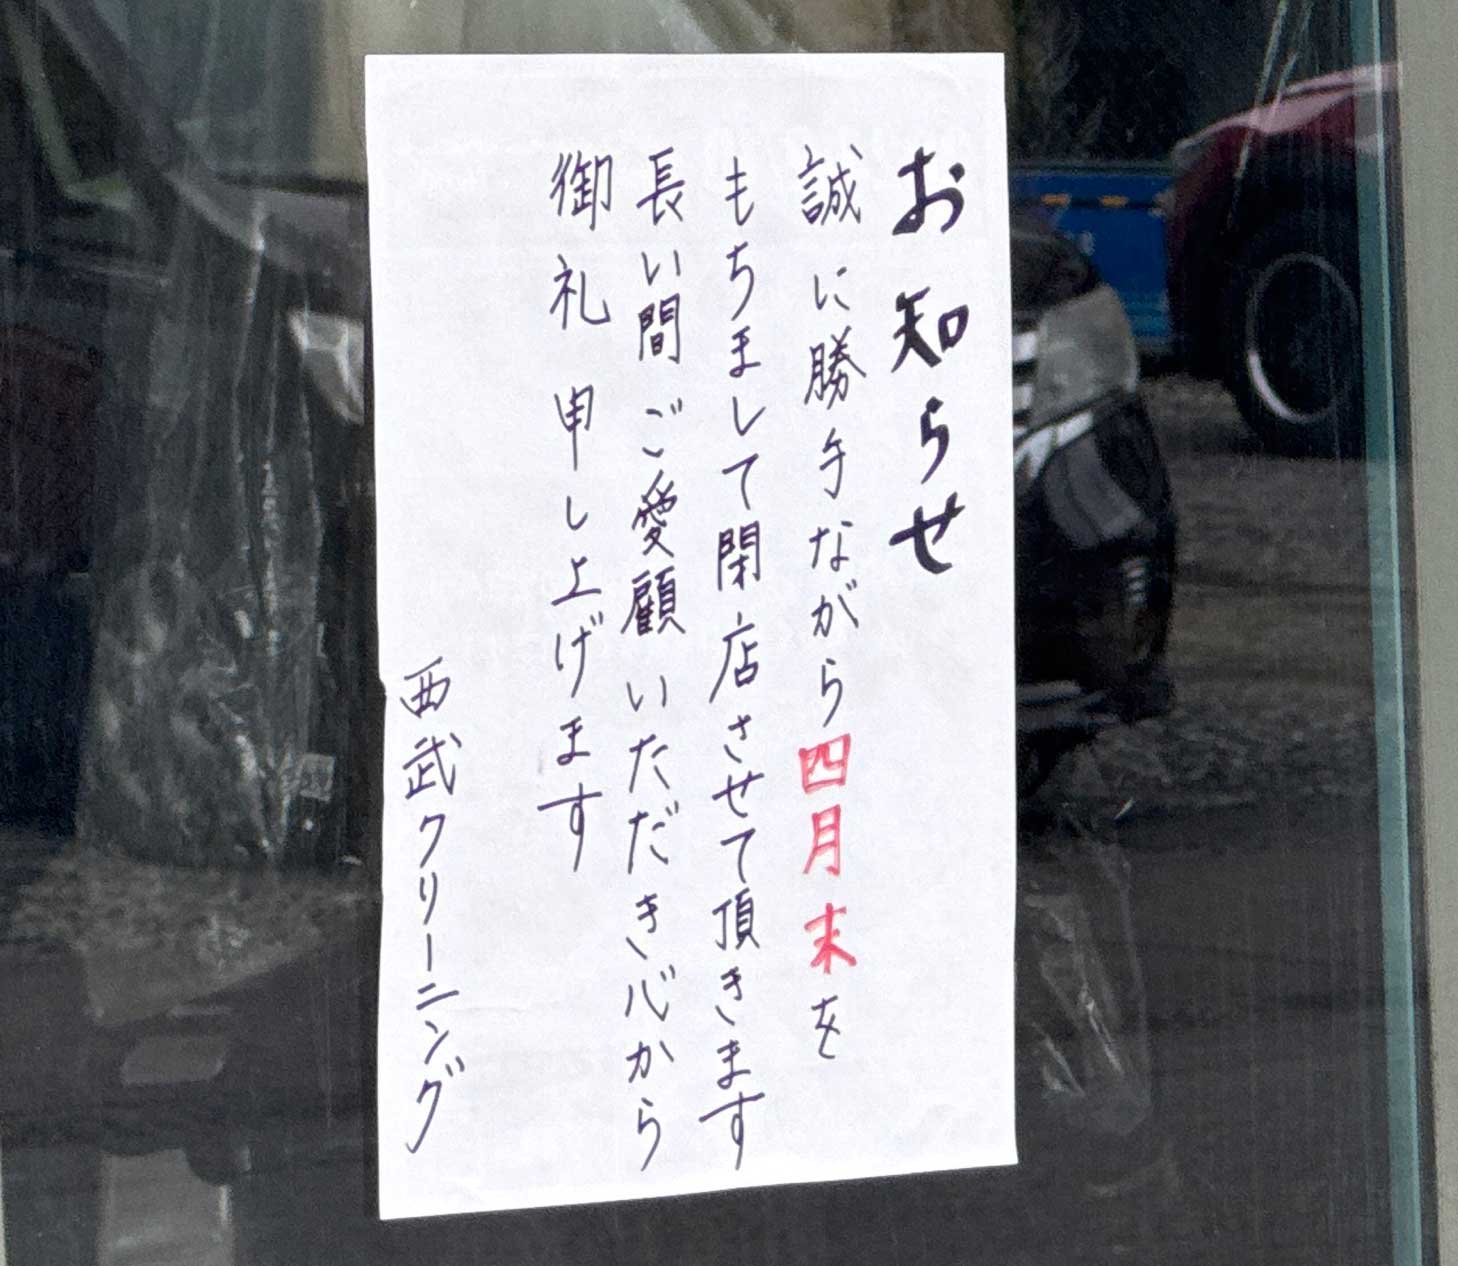 お知らせ
誠に勝手ながら四月末を
もちまして閉店させて頂きます
長い間ご愛顧いただき心から
御礼申し上げます
西武クリーニング